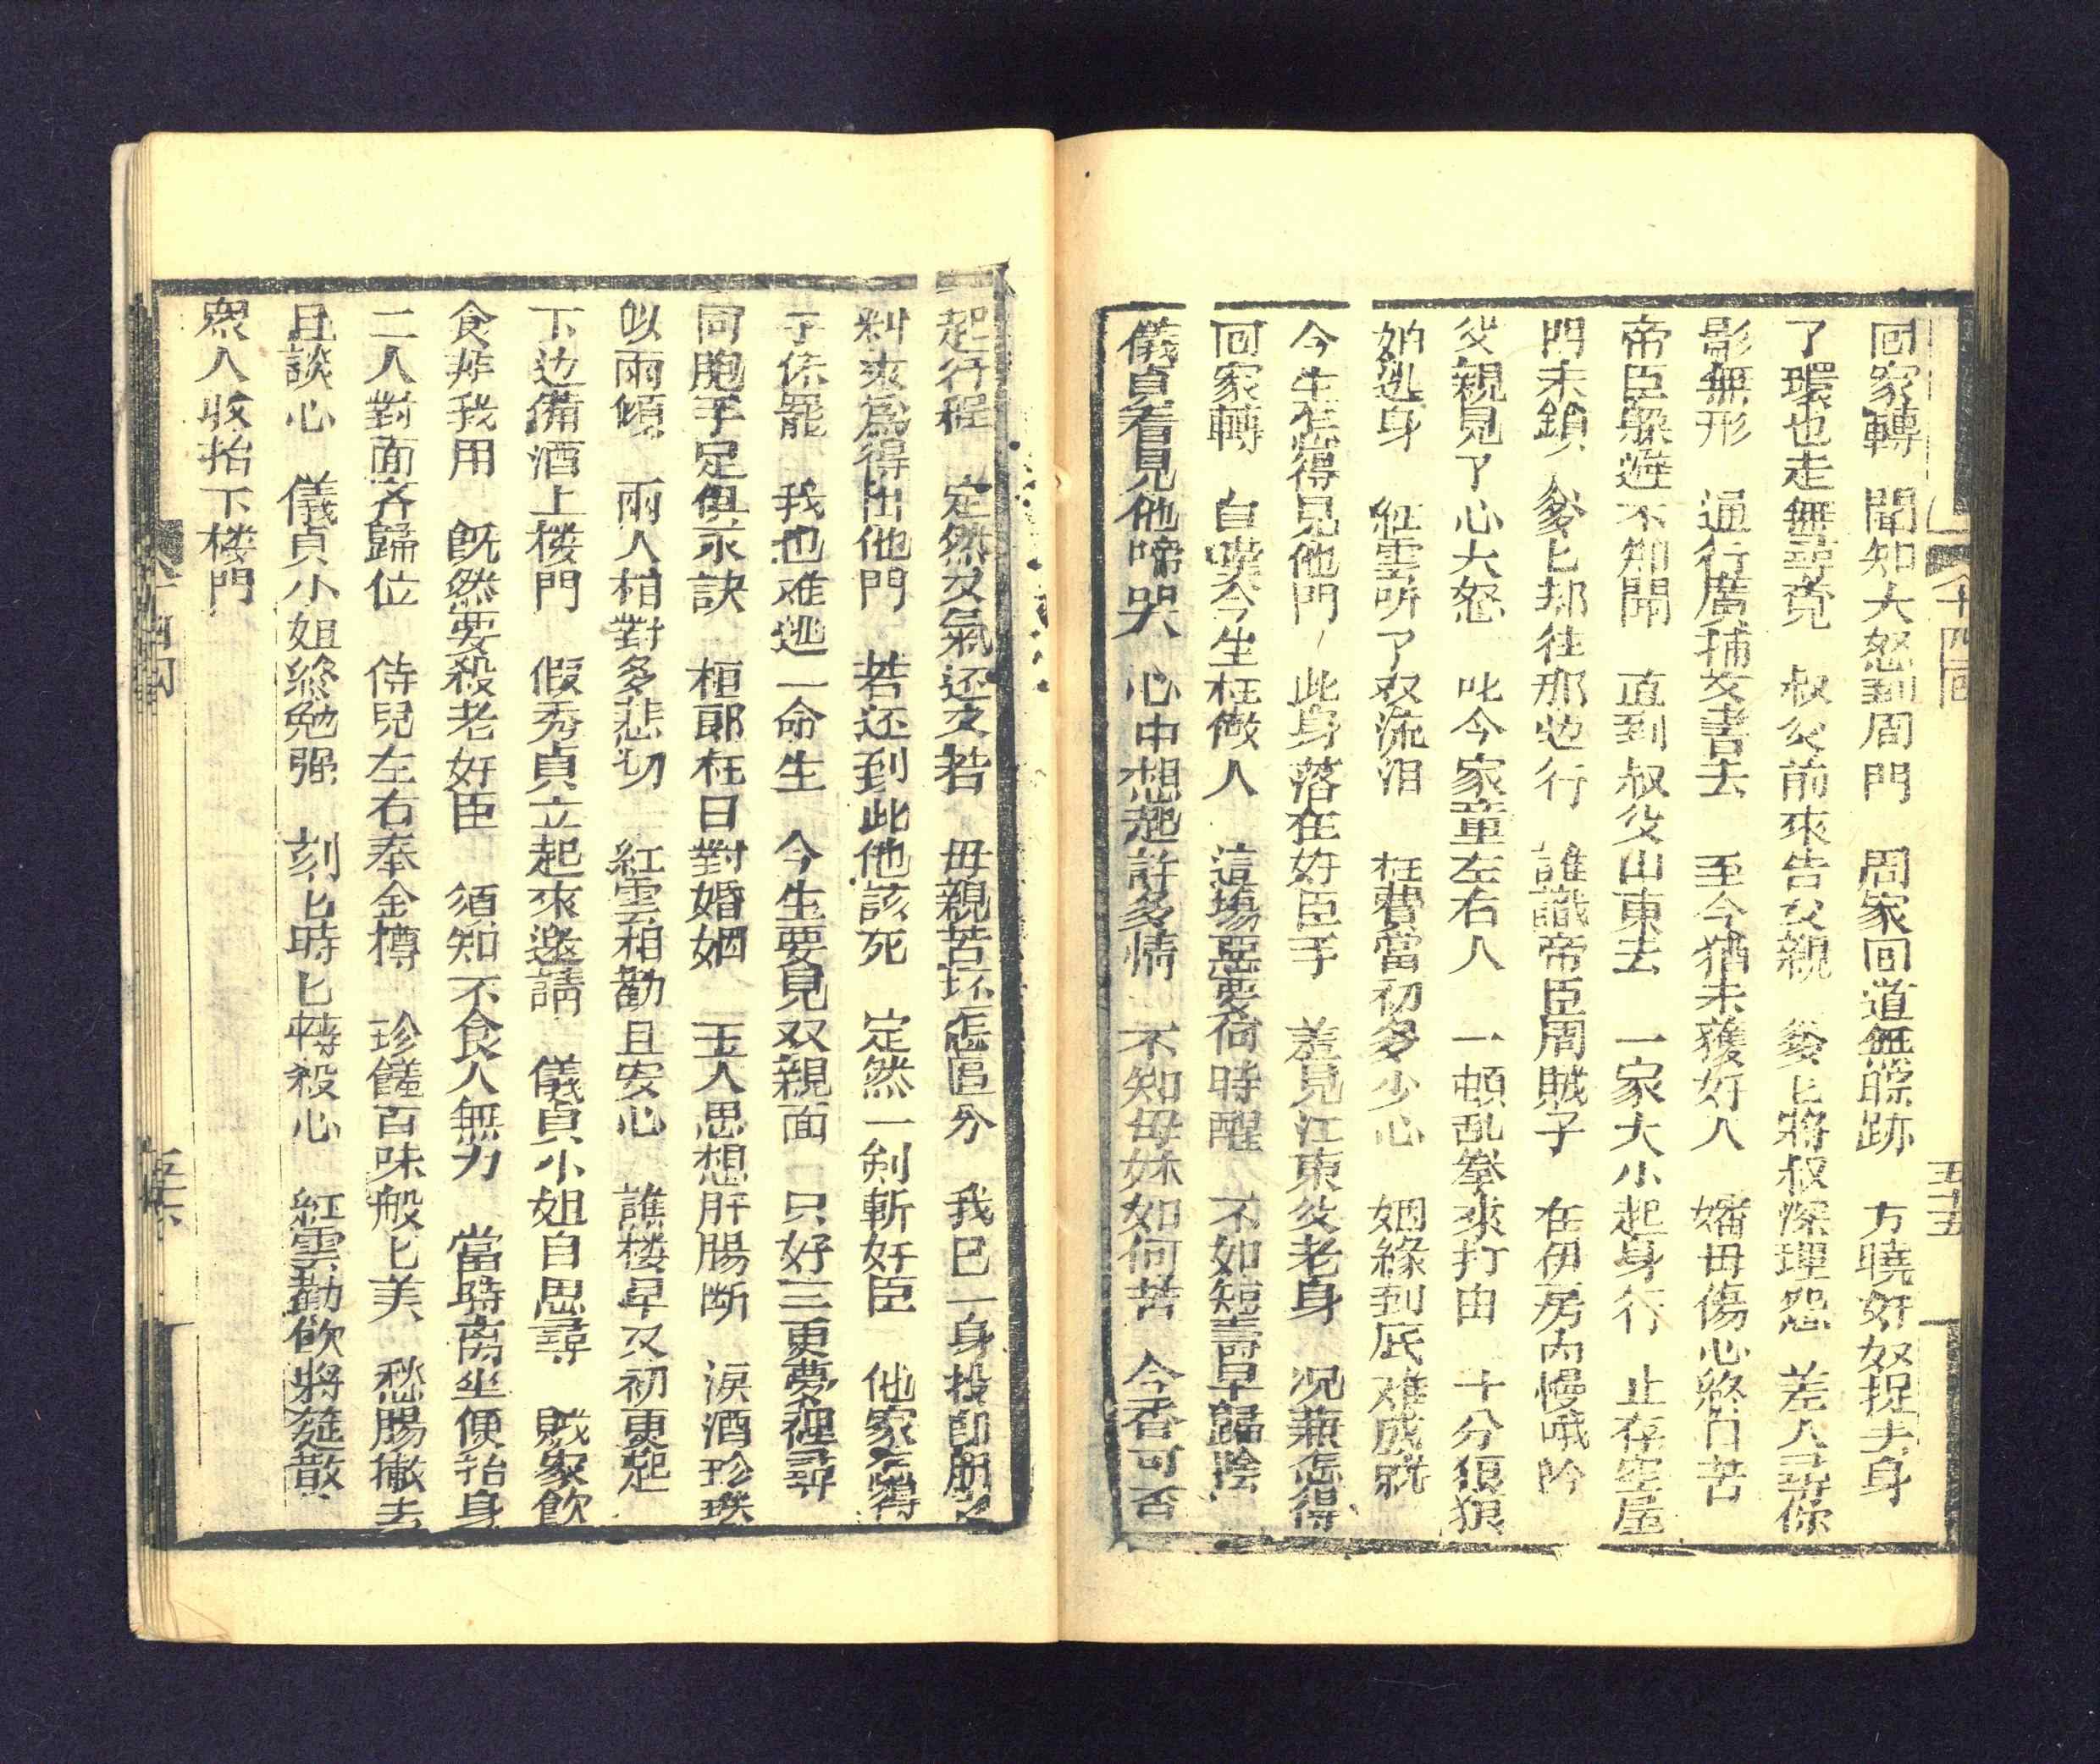 十四回
五十五
回家轉 聞知大怒到周門 周家回道無踪跡 方曉奸奴捉去身
了環也走無尋覓 叔父前來告父親 爹匕將叔深理怨 差人尋你
影無形 通行廣捕文書去 至今猶未獲奸人 嬸母傷心終日苦
帝臣躲避不知聞 直到叔父山東去 一家大小起身行 止存空屋
門未鎖 爹匕却往那边行 誰識帝臣周賊子 在伊房內慢哦吟
父親見了心大怒 叱令家童左右人 一頓乱拳來打由 十分狼狽
始逃身 紅雲听了双流泪 枉費當初多少心 姻緣到底难成就
今生怎得見他門 此身落在奸臣手 羞見江東父老身 况兼怎得
回家轉 自嘆今生枉做人 這塲惡夢何時醒 不如短壽早歸陰
儀貞看見他啼哭 心中想起許多情 不知母妹如何苦 今香可否
起行程 定然又氣还又若 毋親苦坏怎區分 我已一身投
糾來爲得出他門 若还到此他該死 定然一剑斬奸臣 他家怎得
干係罷 我也难逃一命生 今生要見双親面 只好三更夢裡尋
同胞手足俱永訣 桓郎枉日對婚姻 玉人思想肝腸断 淚酒珍珠
似雨傾 兩人相對多悲切 紅雲相勸且安心 譙楼早又初更起
下边備酒上楼門 假秀貞立起來邀請 儀貞小姐自思尋 賊家飲
食非我用 既然要殺老奸臣 須知不食人無力 當時离坐便抬身
二人對面齐歸位 侍兒左右奉金樽 珍饈百味般匕美 愁腸撤去
且談心 儀貞小姐終勉强 刻匕時匕轉殺心 紅雲勸飲將筵散
衆人收拾下楼門